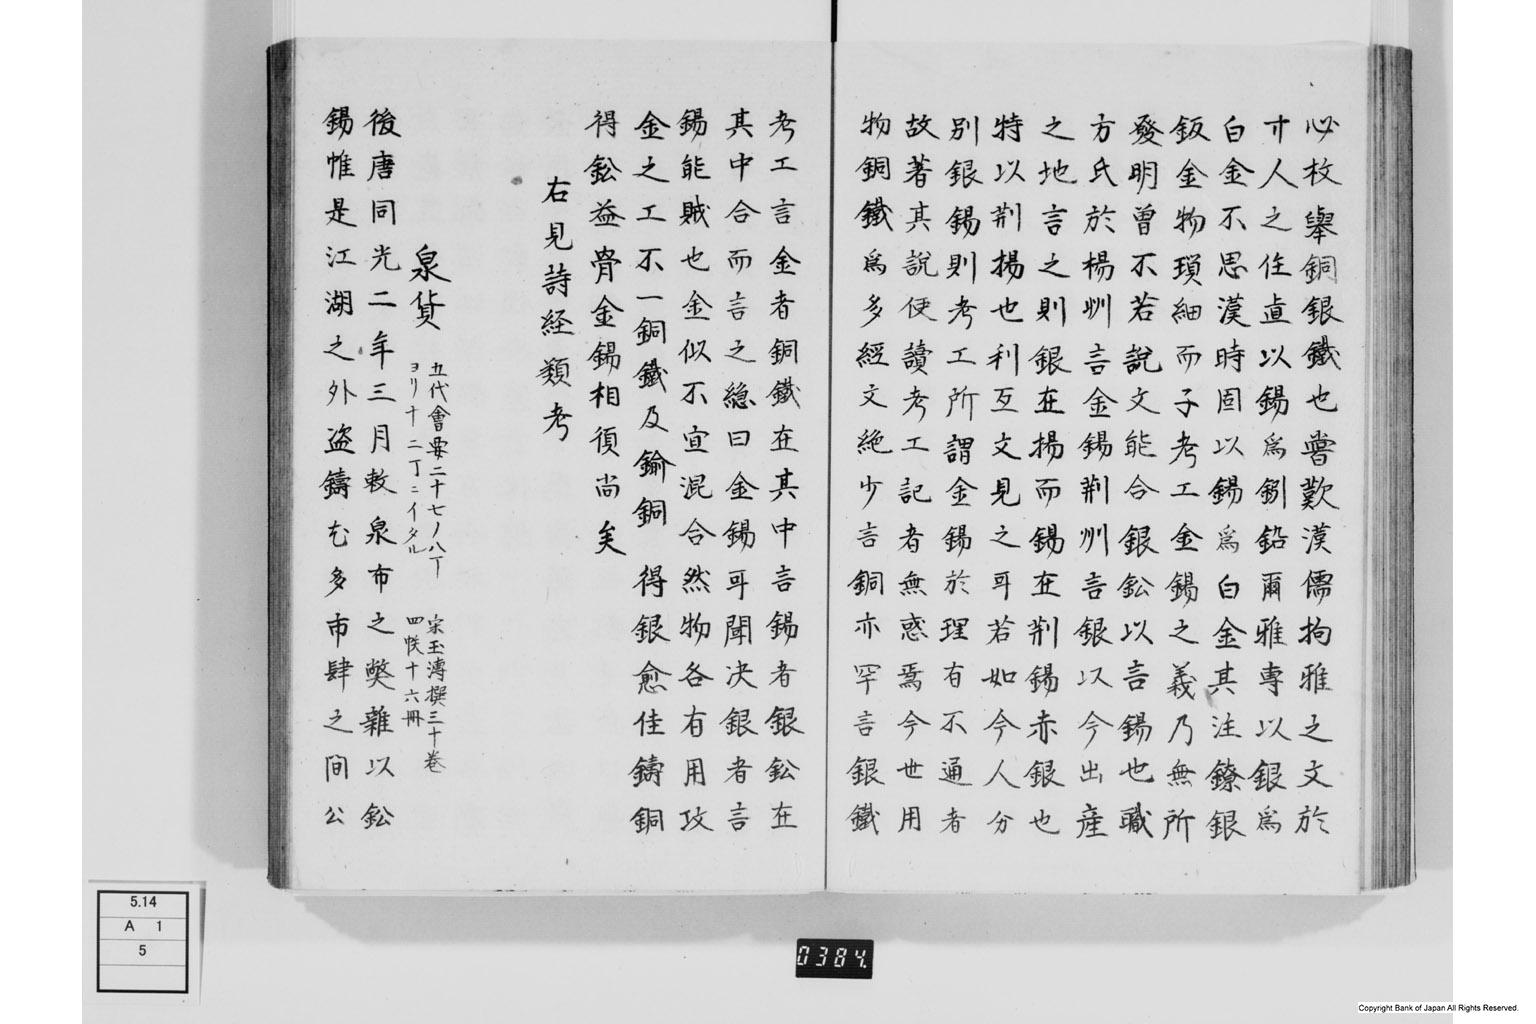 必枚舉銅銀鐵也嘗歎漢儒拘雅之文於
寸人之住直以錫爲鉛爾雅專以銀爲
白金不思漢時固以錫爲白金其注鐐銀
鈑金物瑣細而子考工金錫之義乃無所
發明曽不若說文能合銀鈆以言錫也職
方氏於楊州言金錫荆州言銀以今出産
之地言之則銀在揚而錫在荆錫赤銀也
特以荆揚也利互文見之耳若如今人分
別銀錫則考工所謂金錫於理有不通者
故著其說使讀考工記者無惑焉今世用
物銅鐵爲多經文絶少言銅亦罕言銀鐵
考工言金者銅鐵在其中言錫者銀鈆在
其中合而言之緫曰金錫耳聞决銀者言
錫能賊也金似不宜混合然物各有用攻
金之工不一銅鐵及鍮銅得銀愈佳鑄銅
得鈆益骨金錫相須尚矣
右見詩経類考
泉貨
五代會要二十七ノ八丁
ヨリ十二丁ニイタル
宋王溥撰三十巻
四帙十六冊
後唐同光二年三月敕泉布之獘雜以鈆
錫惟是江湖之外盗鑄尤多市肆之間公
5.14
A 1
5
0384.
Copyright Bank of Japan All Rights Reserved.